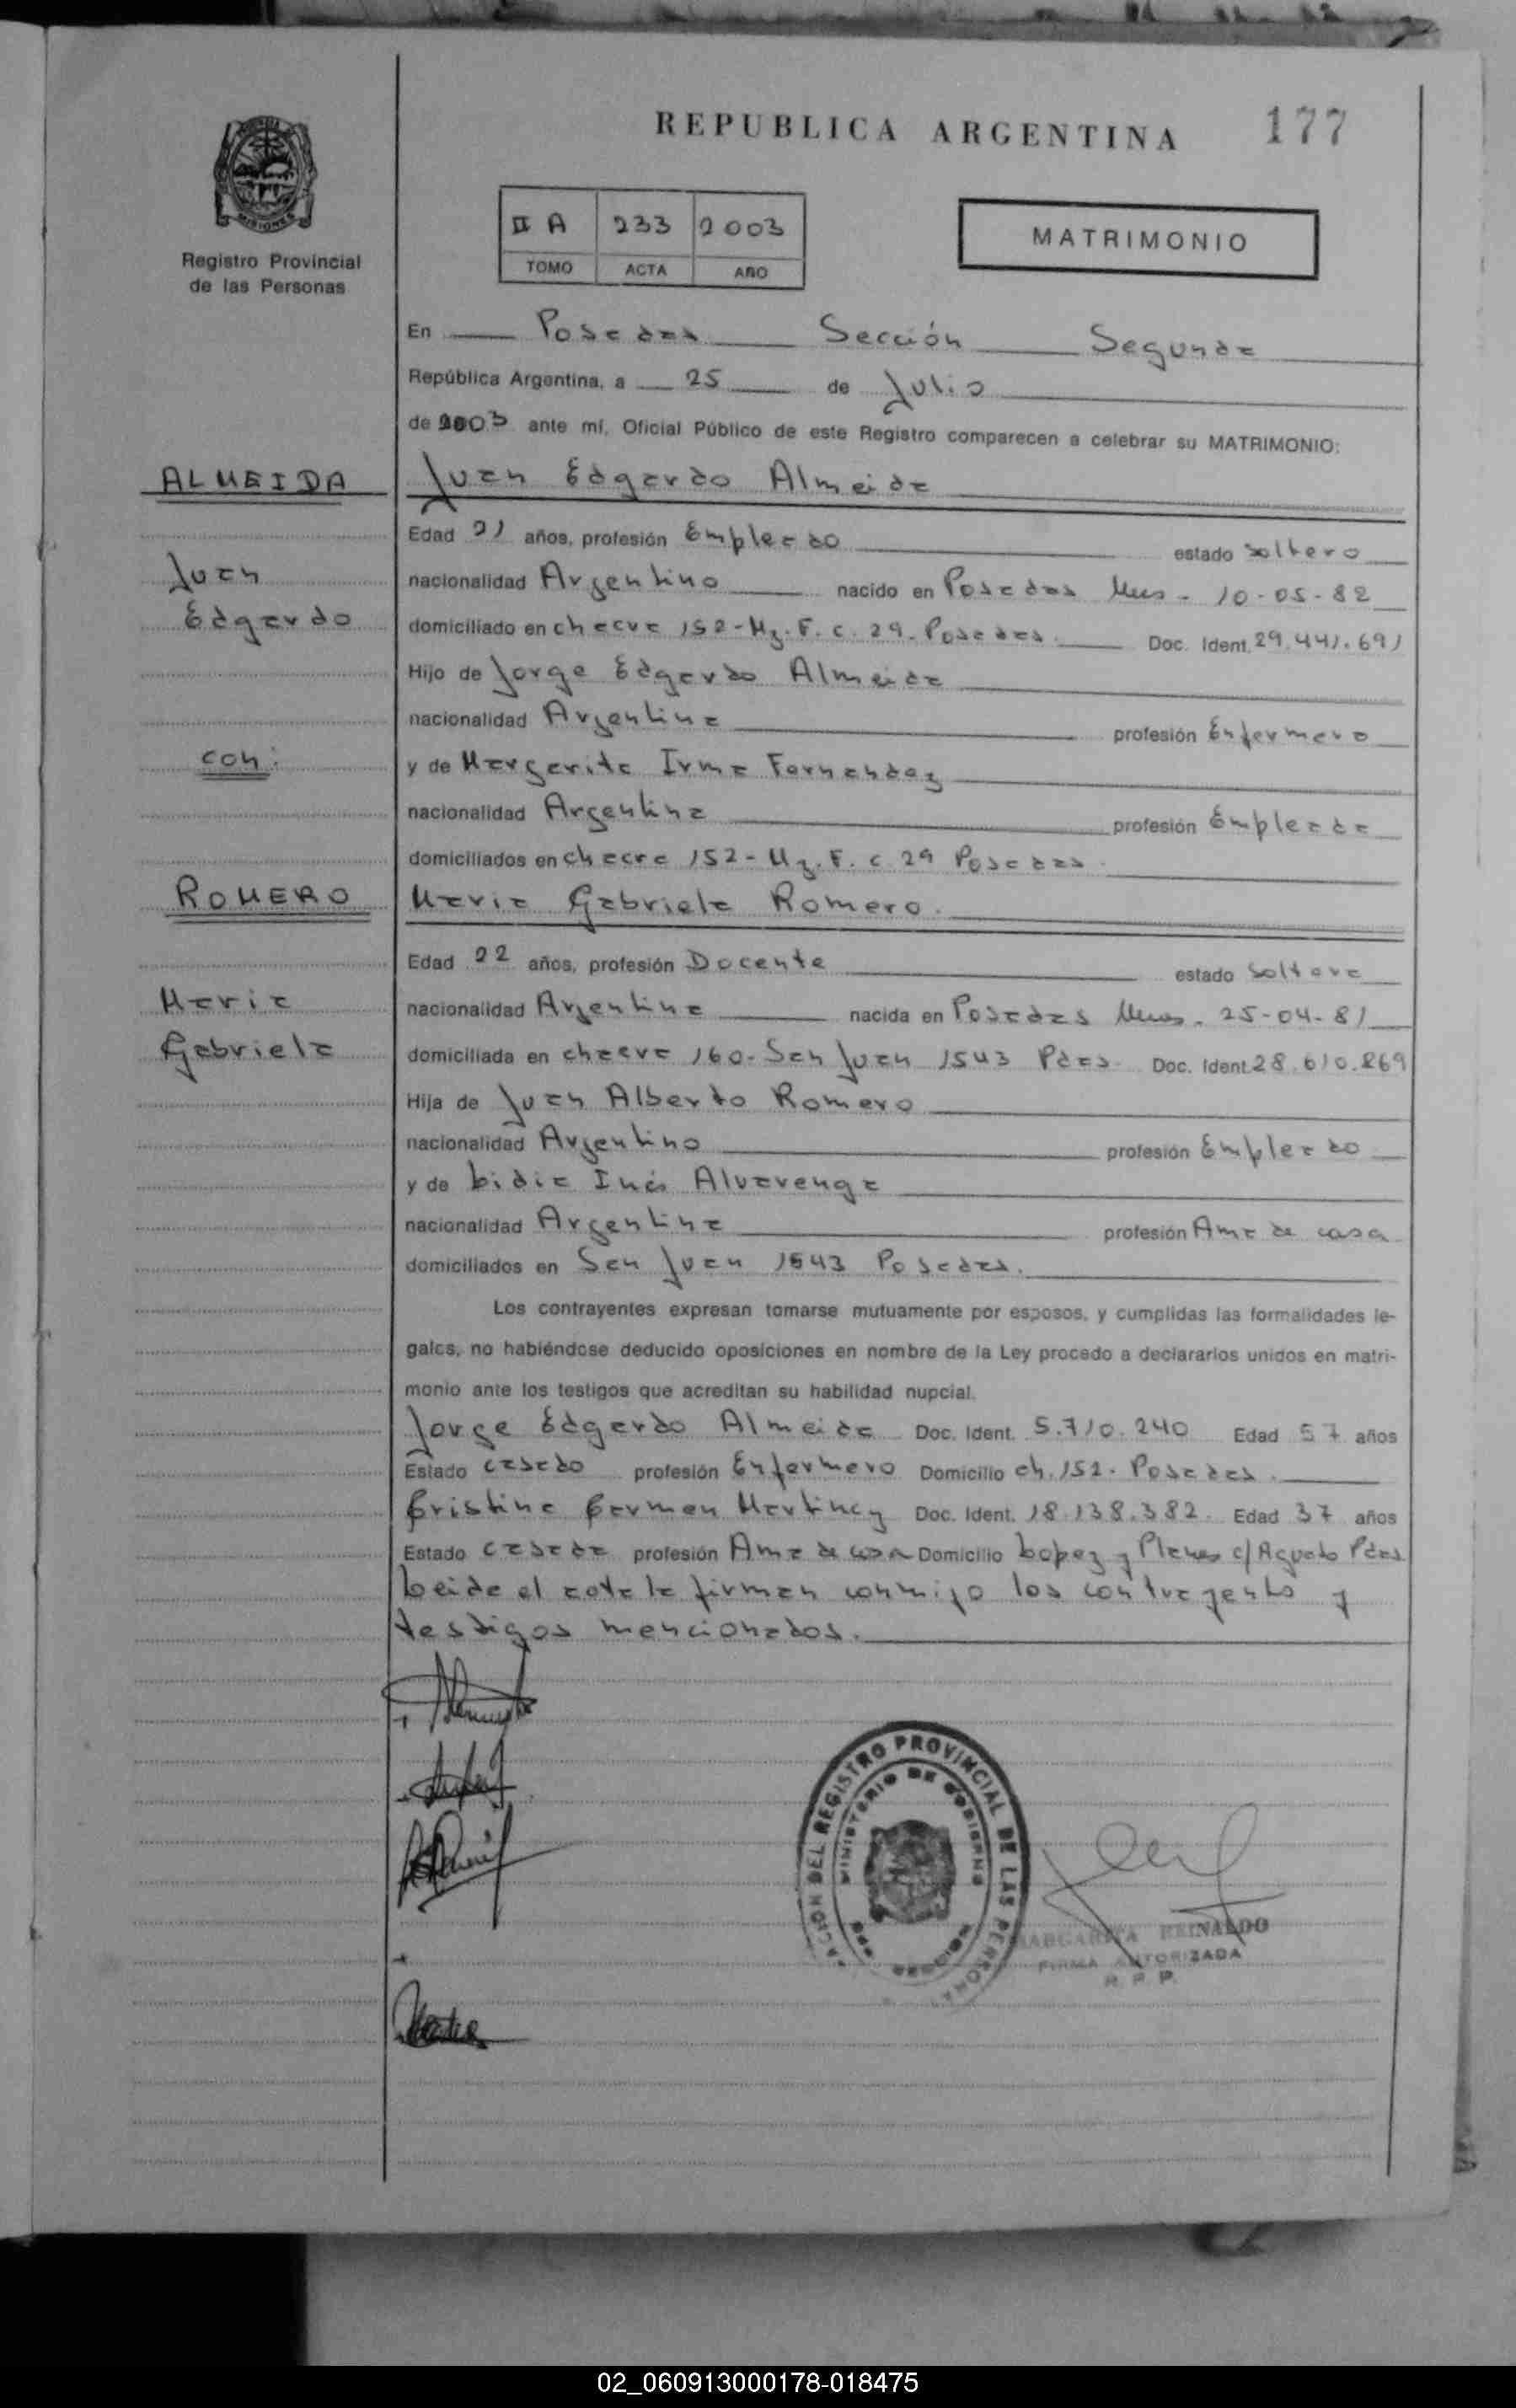 REPUBLICA ARGENTINA 177
MISIONES
Registro Provincial
de las Personas
II A 233 2003
TOMO ACTA AÑO
MATRIMONIO
En Posadas Sección Segunda
República Argentina, a 25 de Julio
de 2003 ante mí, Oficial Público de este Registro comparecen a celebrar su MATRIMONIO:
ALMEIDA
Juan Edgardo Almeida
Edad 21 años, profesión Empleado estado soltero
Juan
nacionalidad Argentino nacido en Posadas Mnes - 10-05-82
Edgardo
domiciliado en chacra 152-Mz. F. c. 29. Posadas. Doc. Ident. 29.441.691
Hijo de Jorge Edgardo Almeida
nacionalidad Argentina profesión Enfermero
con:
y de Margarita Irma Fernandez
nacionalidad Argentina profesión Empleada
domiciliados en chacra 152-Mz. F. c. 29 Posadas.
ROMERO
Maria Gabriela Romero.
Edad 22 años, profesión Docente estado soltera
Maria
nacionalidad Argentina nacida en Posadas Mnes. 25-04-81
Gabriela
domiciliada en chacra 160- San Juan 1543 Pdas. Doc. Ident. 28.610.869
Hija de Juan Alberto Romero
nacionalidad Argentino profesión Empleado
y de Lidia Inés Alvarenga
nacionalidad Argentina profesión Ama de casa
domiciliados en San Juan 1543 Posadas.
Los contrayentes expresan tomarse mutuamente por esposos, y cumplidas las formalidades le-
gales, no habiéndose deducido oposiciones en nombre de la Ley procedo a declararlos unidos en matri-
monio ante los testigos que acreditan su habilidad nupcial.
Jorge Edgardo Almeida Doc. Ident. 5.710.240 Edad 57 años
Estado casado profesión Enfermero Domicilio ch. 152. Posadas.
Cristina Carmen Martinez Doc. Ident. 18.138.382. Edad 37 años
Estado casada profesión Ama de casa Domicilio Lopez y Planes c/ Aguato Pdas
Leida el acta la firman conmigo los contrayentes y
testigos mencionados.
REGISTRO PROVINCIAL DE LAS PERSONAS
MINISTERIO DE GOBIERNO
MARGARITA REINALDO
FIRMA AUTORIZADA
R. P. P.
02_060913000178-018475